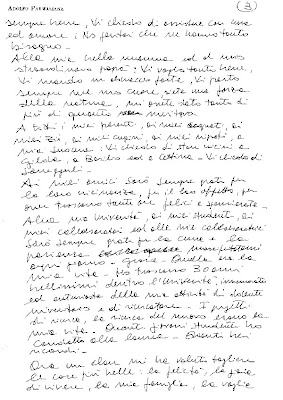 ADOLFO PARMALIANA
3
sempre bene, Vi chiedo di assistere con cura
ed amore i No fratelli che ne hanno tanto
bisogno.
Alla mia bella mamma ed al mio
straordinario papà: Vi voglio tanto bene,
Vi mando un abbraccio forte, Vi porto
sempre nel mio cuore, siete una forza
della natura, mi avete dato tanto di
più di quanto meritavo.
A tutti i miei parenti, ai miei cognati, ai
miei zii, ai miei cugini, ai miei nipoti, a
mia suocera: Vi chiedo di stare vicini a
Gilda, a Basilio ed a Cettina. Vi chiedo di
sorreggerli.
Ai miei amici sarò sempre grato per
la loro vicinanza, per il loro affetto, per
aver trascorso tante ore felici e spensierate.
Alla mia università, ai miei studenti, ai
miei collaboratori ed alle mie collaboratrici
sarò sempre grato per la cura e la
pazienza manifestatemi
ogni giorno. Grazie. Quella era la
mia vita. Ho trascorso 30 anni
bellissimi dentro l'università, innamorato
ed entusiasta della mia attività di docente
universitario e di ricercatore. I progetti
di ricerca, la ricerca del nuovo erano la
mia vita. Quanti giovani studenti ho
condotto alla laurea. Quanti bei
ricordi.
Ora un clan mi ha voluto togliere
le cose più belle: la felicità, la gioia
di vivere, la mia famiglia, la voglia